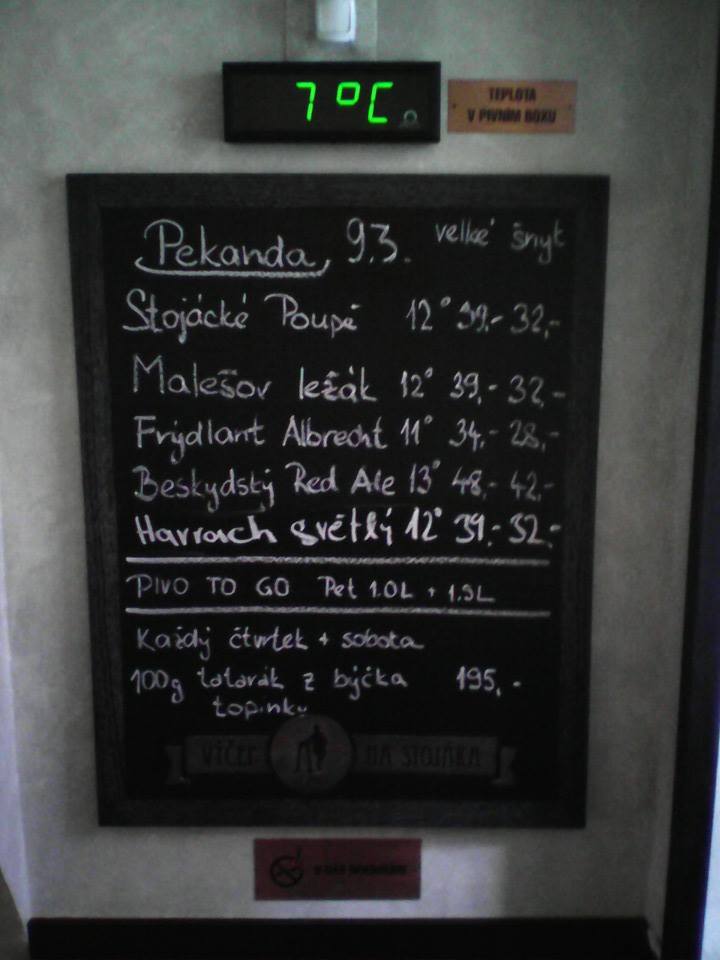 7°C
TEPLOTA
V PIVNÍM BOXU
Pekanda, 9.3. velké šnyt
Stojácké Poupě 12° 39,- 32,-
Malešov ležák 12° 39,- 32,-
Frýdlant Albrecht 11° 34,- 28,-
Beskydský Red Ale 13° 48,- 42,-
Harrach světlý 12° 39,- 32,-
PIVO TO GO Pet 1.0L + 1.5L
Každý čtvrtek + sobota
100g tatarák z býčka 195,-
topinky
VÝČEP NA STOJÁKA